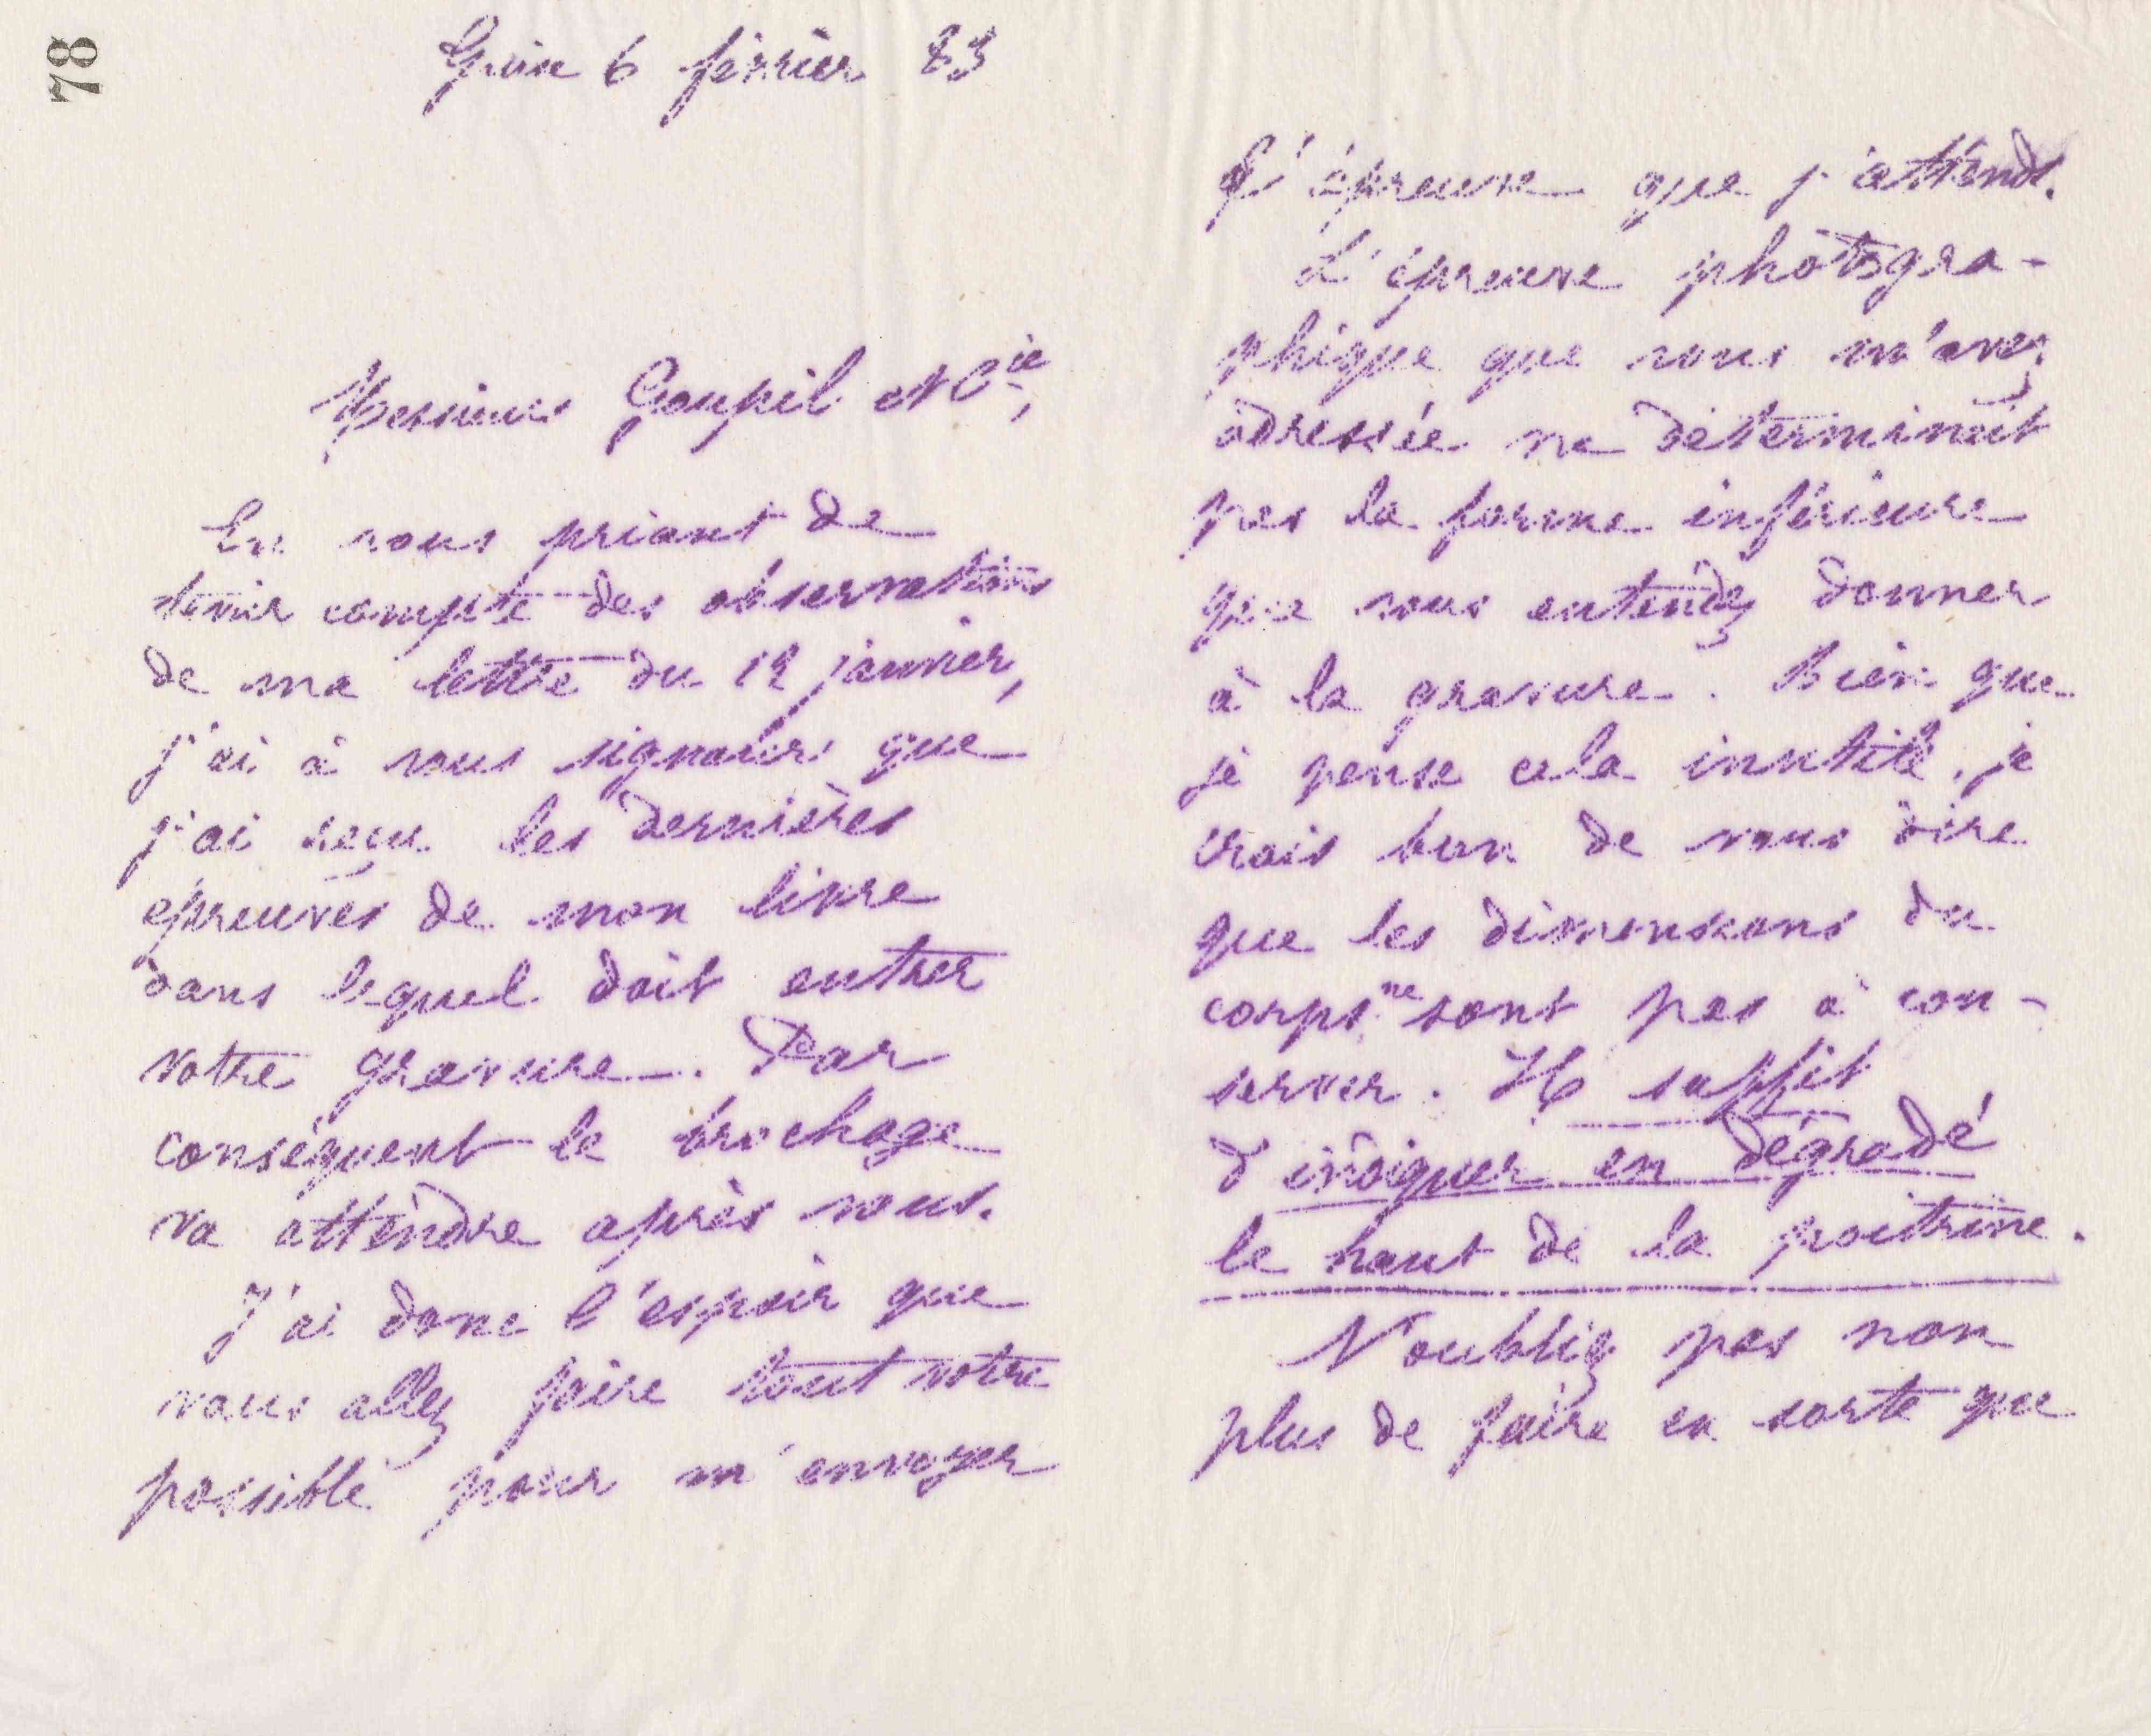 78
Guise 6 février 83
Messieurs Goupil et Cie,
En vous priant de
tenir compte des observations
de ma lettre du 12 janvier,
j'ai à vous signaler que
j'ai reçu les dernières
épreuves de mon livre
dans lequel doit entrer
votre gravure. Par
conséquent le brochage
va attendre après vous.
J'ai donc l'espoir que
vous allez faire tout votre
possible pour m'envoyer
l'épreuve que j'attends.
L'épreuve photogra-
phique que vous m'avez
adressée ne déterminait
pas la forme inférieure
que vous entendez donner
à la gravure. Bien que
je pense cela inutile, je
crois bon de vous dire
que les dimensions du
corps ne sont pas à con-
server. Il suffit
d'indiquer en dégradé
le haut de la poitrine.
N'oubliez pas non
plus de faire en sorte que